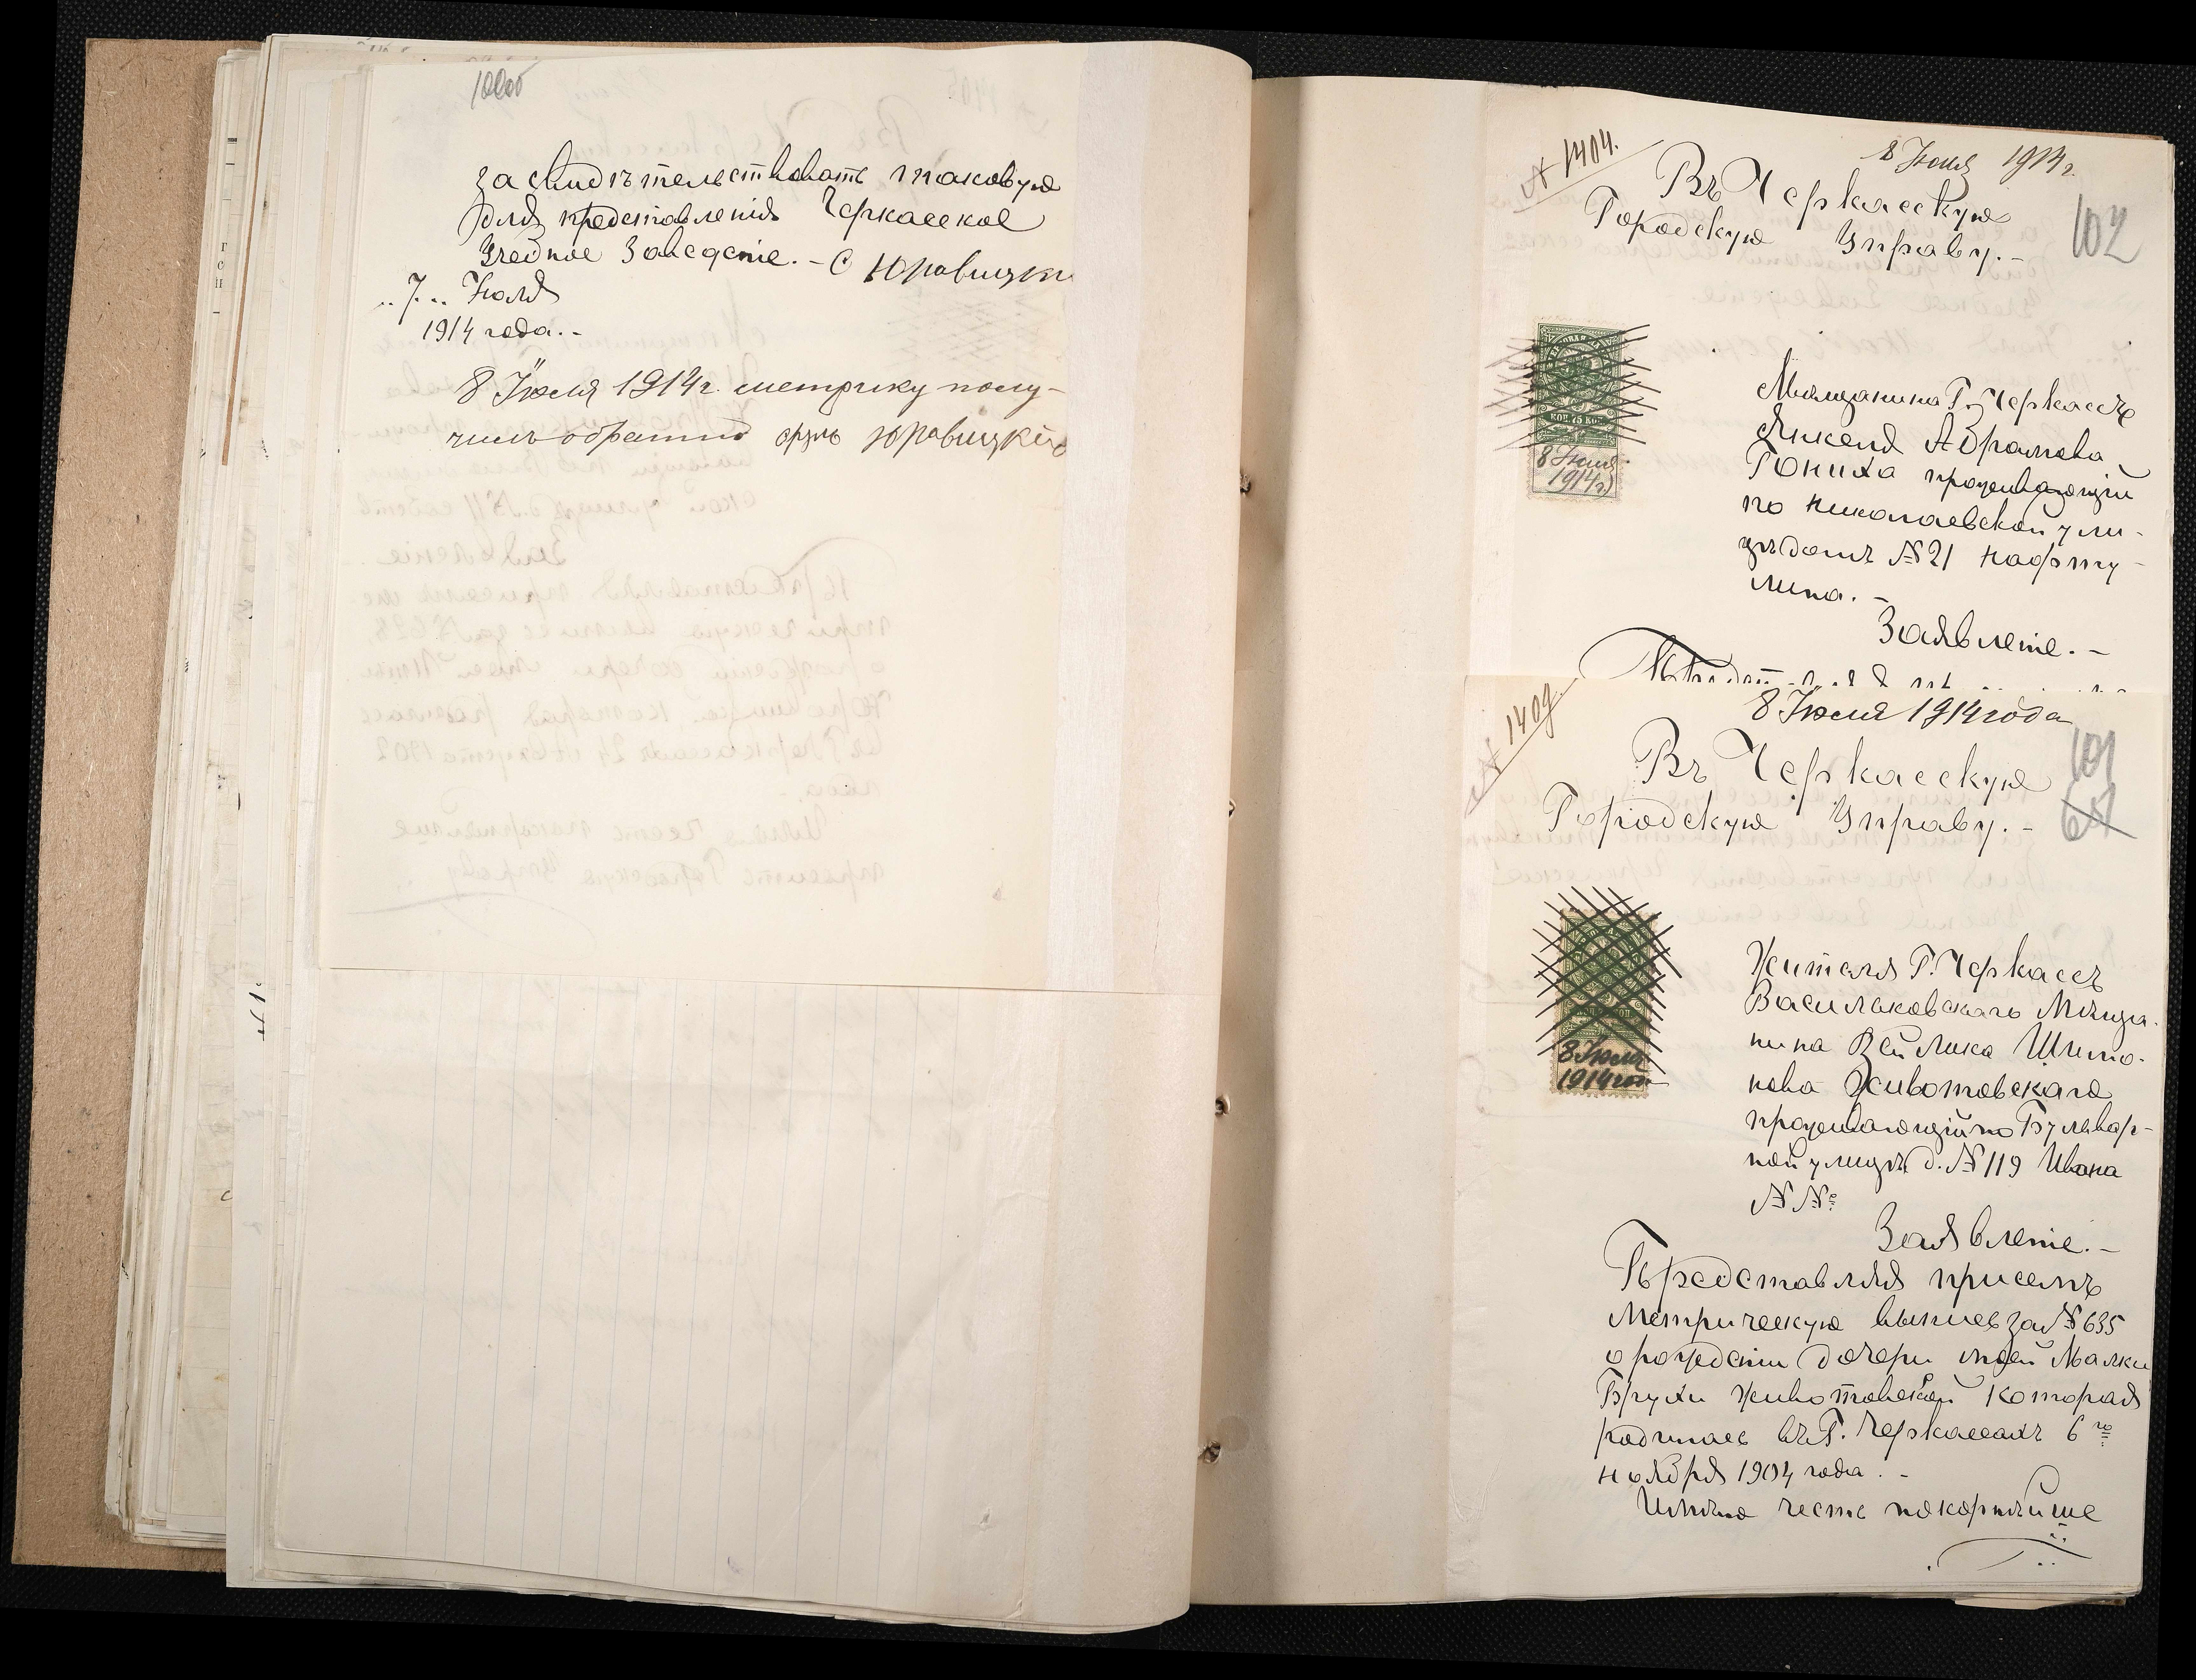 засвидѣтельствовать таковую
для представленія Черкасское
Учебное Заведеніе. - С Юровицкі
"7" Іюля
1914 года. -
8 Іюля 1914 г. метрику полу-
чилъ обратно Юровицкій
№ 1404.
8 Іюля 1914 г.
Въ Черкасскую
Городскую Управу. -
102
КОП 75 КОП
8 Іюля
1914 г
Мѣщанина Г. Черкассъ
Янкеля Абрамова
Гониха проживающій
по Николаевской ули-
цѣ домъ № 21 Нафту-
лина. -
Заявленіе. -
№ 1409.
8 Іюля 1914 года
101
Въ Черкасскую
Городскую Управу. -
8 Іюля
1914 год
Жителя Г. Черкассъ
Васильковскаго Мѣща-
нина Вейлика Шимо-
нова Животовскаго
проживающій по Бульвар-
ной улицѣ д. № 119 Ивана
№ №
Заявленіе. -
Представляя присемъ
Метрическую выпись за № 635
о рожденіи дочери моей Малки
Брухи Животовской которая
родилась въ Г. Черкассахъ 6го
ноября 1904 года. -
Имѣю честь покорнѣйше